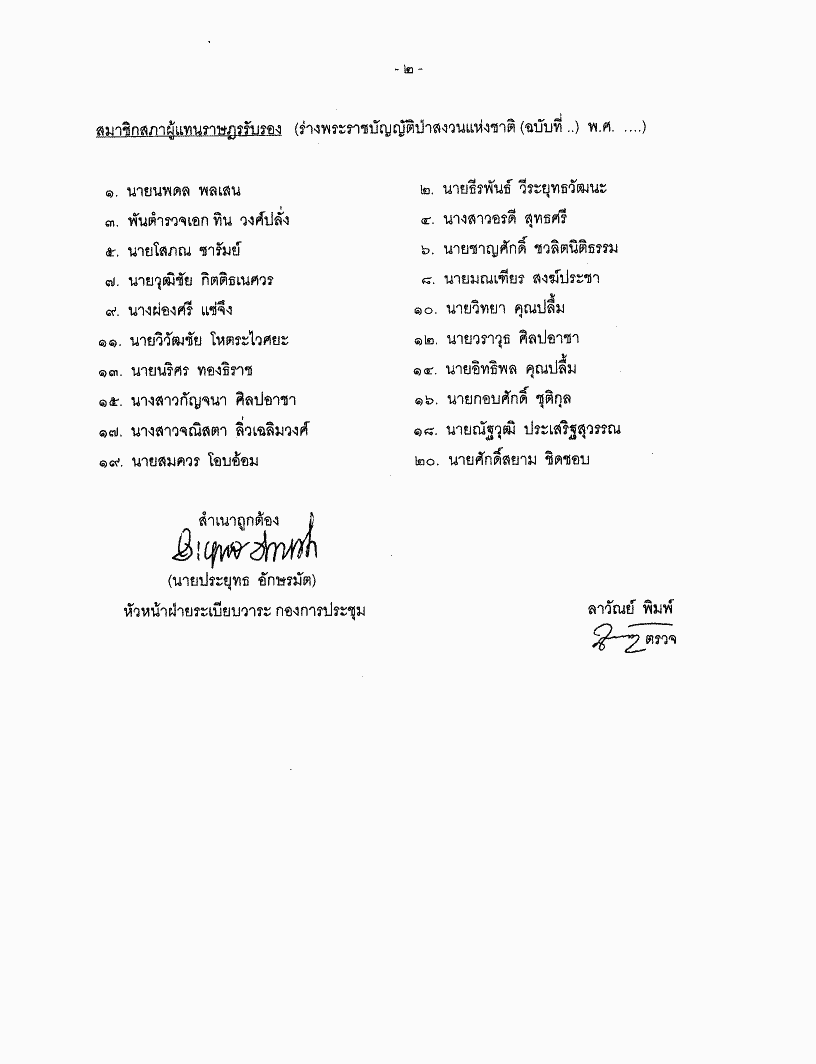 - ๒ -
สมาชิกสภาผู้แทนราษฎรรับรอง (ร่างพระราชบัญญัติป่าสงวนแห่งชาติ (ฉบับที่ ..) พ.ศ. ....)
๑. นายนพดล พลเสน ๒. นายธีรพันธ์ วีระยุทธวัฒนะ
๓. พันตำรวจเอก ทิน วงศ์ปลั่ง ๔. นางสาวอรดี สุทธศรี
๕. นายโสภณ ซารัมย์ ๖. นายชาญศักดิ์ ชวลิตนิติธรรม
๗. นายวุฒิชัย กิตติธเนศวร ๘. นายมณเฑียร สงฆ์ประชา
๙. นางผ่องศรี แซ่จึง ๑๐. นายวิทยา คุณปลื้ม
๑๑. นายวิวัฒชัย โหตระไวศยะ ๑๒. นายวราวุธ ศิลปอาชา
๑๓. นายนริศร ทองธิราช ๑๔. นายอิทธิพล คุณปลื้ม
๑๕. นางสาวกัญจนา ศิลปอาชา ๑๖. นายกอบศักดิ์ ชุติกุล
๑๗. นางสาวจณิสตา ลิ่วเฉลิมวงศ์ ๑๘. นายณัฐวุฒิ ประเสริฐสุวรรณ
๑๙. นายสมควร โอบอ้อม ๒๐. นายศักดิ์สยาม ชิดชอบ
สำเนาถูกต้อง
(นายประยุทธ อักษรมัต)
หัวหน้าฝ่ายระเบียบวาระ กองการประชุม
ลาวัณย์ พิมพ์
ตรวจ